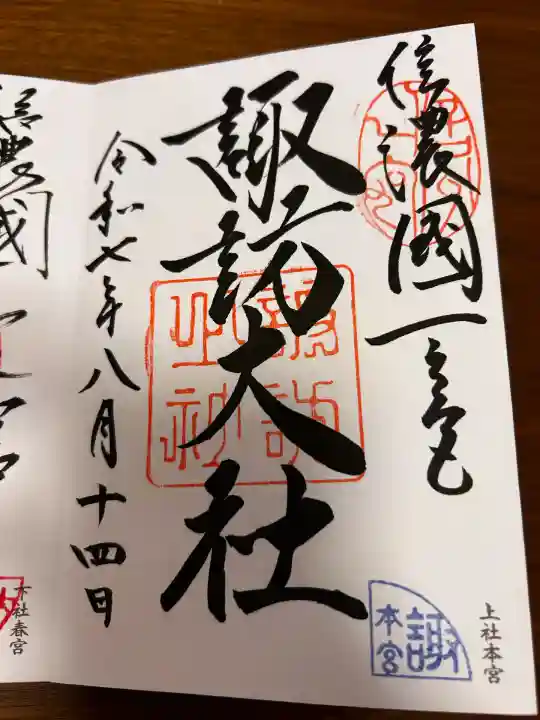 信濃國一之宮
諏訪大社
令和七年八月十四日
上社本宮
諏
本宮
信濃國一之宮
下社春宮